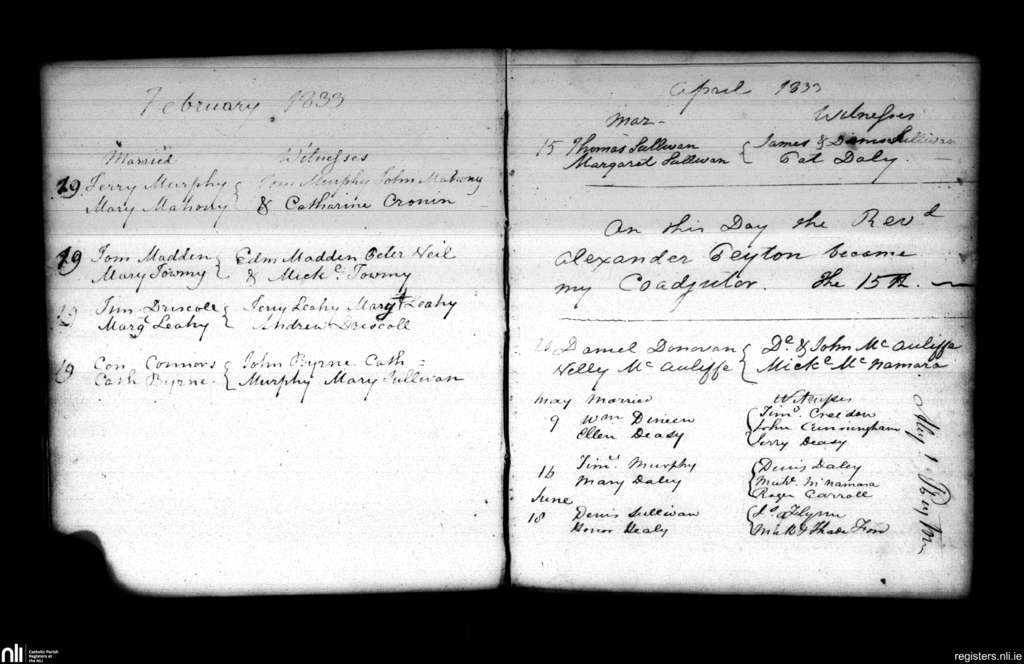 February 1833
Married Witnesses
19 Jerry Murphy { Tom Murphy John Mahony
Mary Mahony & Catharine Cronin
19 Tom Madden { Edm Madden Peter Neil
Mary Towmy & Mick.c Towmy
19 Tim Driscoll { Jerry Leahy Margt Leahy
Marg. Leahy Andrew Driscoll
19 Con Connors { John Byrne Cath=
Cath Byrne. Murphy Mary Sullivan
April 1833
Mar- Witnesses
15 Thomas Sullivan { James & Denis Sullivan
Margaret Sullivan Pat Daly.
On this Day the Revd
Alexander Peyton became
my Coadjutor. The 15th.
Daniel Donovan { Dl. & John Mc Auliffe
Nelly Mc Auliffe Mickc Mc Namara
May Married Witnesses
9 Wm Dineen { Timy. Creedon
Ellen Deasy John Cunningham
Jerry Deasy
16 Timy. Murphy { Denis Daley
Mary Daley Mick. McNamara
Roger Carroll
June
18 Denis Sullivan { Flynn
Honor Healy
Alex
nli Catholic Parish
Registers at
the NLI
registers.nli.ie